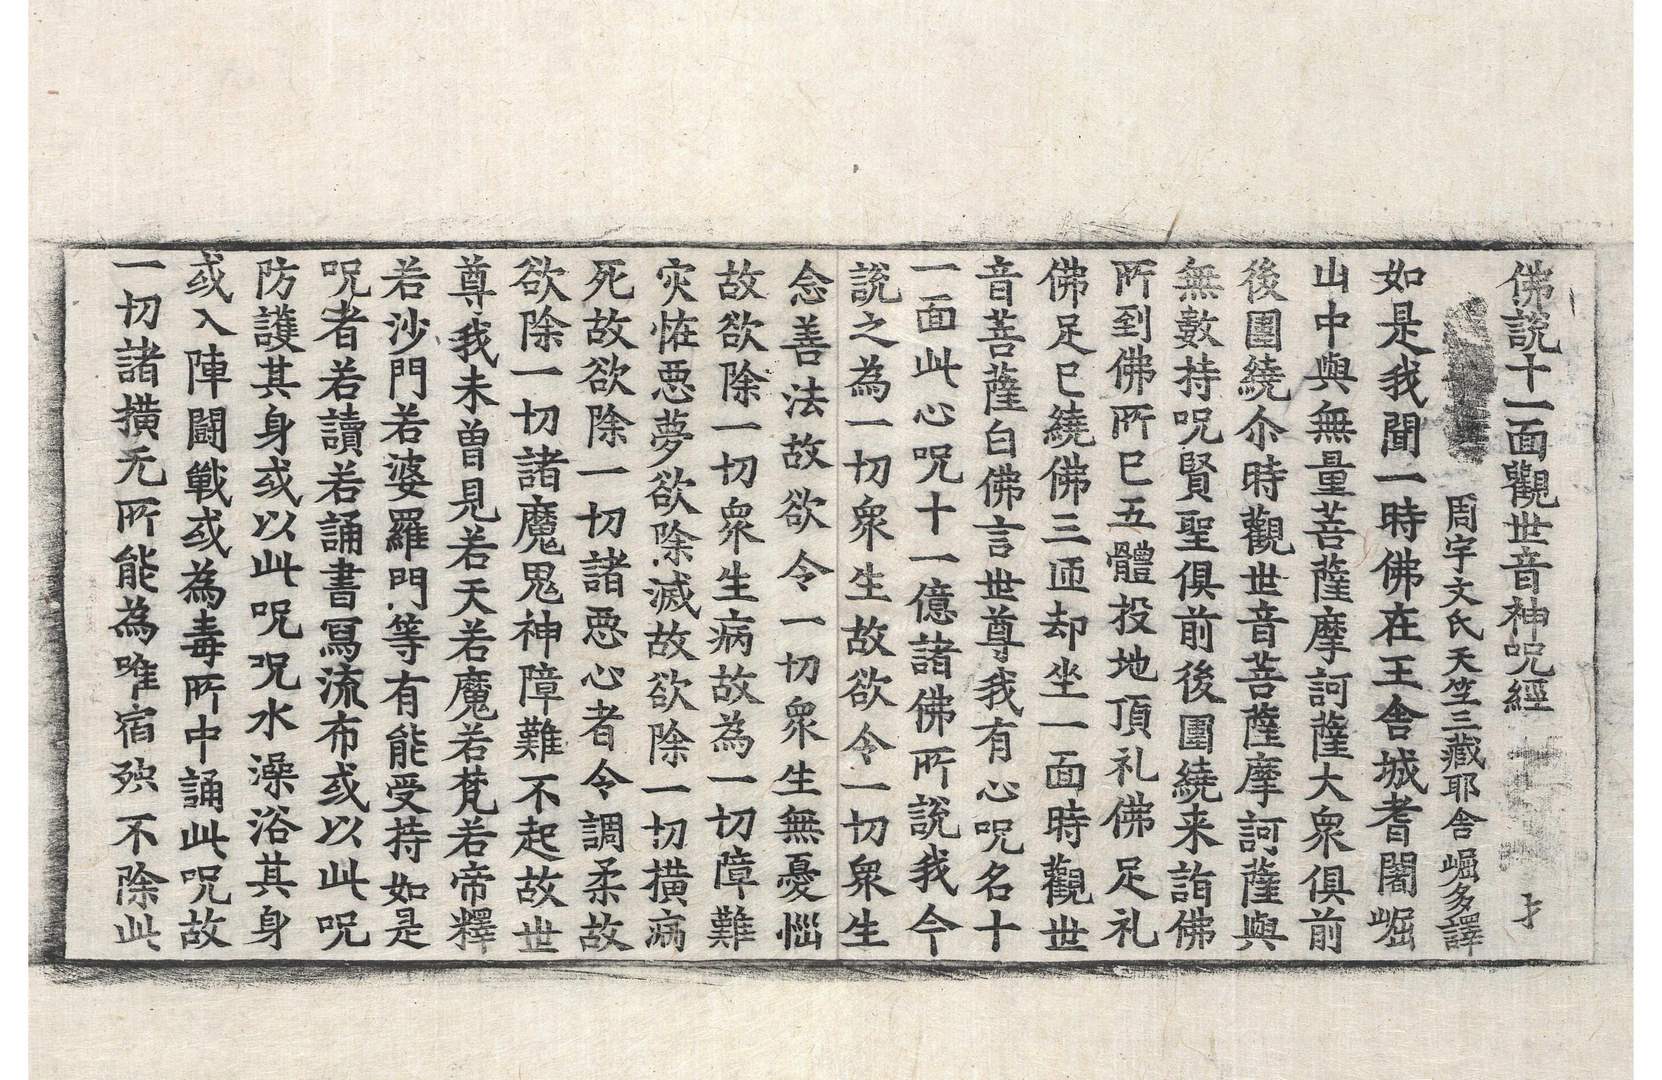 佛說十一面觀世音神呪經 才
周宇文氏天竺三藏耶舍崛多譯
如是我聞一時佛在王舍城耆闍崛
山中與無量菩薩摩訶薩大衆俱前
後圍繞尒時觀世音菩薩摩訶薩與
無數持呪賢聖俱前後圍繞来詣佛
所到佛所已五體投地頂礼佛足礼
佛足已繞佛三匝却坐一面時觀世
音菩薩白佛言世尊我有心呪名十
一面此心呪十一億諸佛所說我今
說之為一切衆生故欲令一切衆生
念善法故欲令一切衆生無憂惱
故欲除一切衆生病故為一切障難
灾恠惡夢欲除滅故欲除一切横病
死故欲除一切諸惡心者令調柔故
欲除一切諸魔鬼神障難不起故世
尊我未曾見若天若魔若梵若帝釋
若沙門若婆羅門等有能受持如是
呪者若讀若誦書寫流布或以此呪
防護其身或以此呪呪水澡浴其身
或入陣鬪戰或為毒所中誦此呪故
一切諸横无所能為唯宿殃不除此